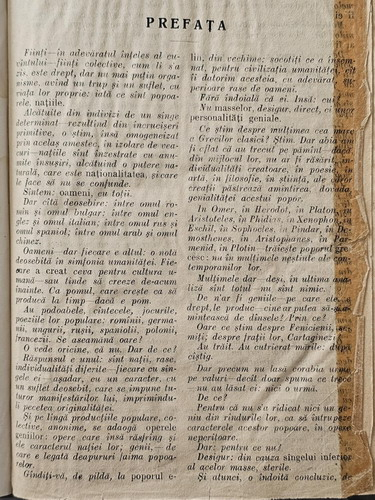 PREFAȚA
Ființi—în adevăratul înțeles al cu-
vîntului—ființi colective, cum li s'a
zis, este drept, dar nu mai puțin orga-
nisme, avînd un trup și un suflet, cu
viața lor proprie: iată ce sînt popoa-
rele, națiile.
Alcătuite din indivizi de un singur
determinat—rezultînd din încrucișeri
primitive, o știm, însă omogeneizat
prin acelaș amestec, în izolare de vea-
curi—națiile sînt înzestrate cu anu-
mite însușiri, alcătuind o putere na-
turală, care este naționalitatea, și care
le face să nu se confunde.
Sîntem, oameni, cu toții.
Dar cîtă deosebire: între omul ro-
mîn și omul bulgar; între omul en-
glez și omul italian; între omul rus și
omul spaniol; între omul arab și omul
chinez.
Oameni—dar fiecare e altul: o notă
deosebită în simfonia umanității. Fie-
care a creat ceva pentru cultura u-
mană—sau tinde să creeze deacum
înainte. Ca pomul, care crește ca să
producă la timp dacă e pom.
Au podoabele, cîntecele, jocurile,
poeziile lor populare: rominii, germa-
nii, ungurii, rușii, spaniolii, polonii,
francezii. Se aseamănă oare!
O vede oricine, că nu. Dar de ce!
Răspunsul e unul: sînt nații, rase,
individualități diferite—fiecare cu sin-
gele ei—așadar, cu un caracter, cu
un suflet deosebit, care se impune tu-
turor manifestărilor lui, imprimîndu-
li pecetea originalității.
Și pe lîngă producțiile populare, co-
lective, anonime, se adaogă operele
geniilor: opere care însă răsfrîng și
ele caracterul nației lor; genii,— de
care e legată deapururi faima popoa-
relor.
Gîndiți-vă, de pildă, la poporul e-
lin, din vechime; socotiți ce a însem-
nat, pentru civilizația umanității, cît
îi datorim acesteia, cu adevărat su-
perioare rase de oameni.
Fără îndoială că ei. Însă: cui!
Nu masselor, desigur, direct, ci unor
personalități geniale.
Ce știm despre mulțimea cea mare
a Grecilor clasici? Știm. Dar abia am
fi aflat că au trecut pe pămînt—dacă
din mijlocul lor, nu ar fi răsărit in-
dividualități creatoare, în poezie, în
artă, în filosofie, în știință, ale căror
creații păstrează amintirea, dovada
genialității acestui popor.
În Omer, în Herodot, în Platon, în
Aristoteles, în Phidias, în Xenophon, în
Eschil, în Sophocles, în Pindar, în De-
mosthenes, în Aristophanes, în Par-
menid, în Plotin—trăiește poporul gre-
cesc: nu în mulțimele neștiute ale con-
temporanilor lor.
Mulțimele dar—deși, în ultima ana-
liză sînt totul—nu sînt nimic.
De n'ar fi geniile—pe care ele,
drept, le produc—cine ar putea să-și
amintească de dînsele! Prin ce!
Oare ce știm despre Fenicieni, se-
miți; despre frații lor, Cartaginezii
Au trăit. Au cutrierat mările: după
cîștig.
Dar precum nu lasă corabia urme
pe valuri—decît doar, spuma ce trece
—nu au lăsat ei: nici o urmă.
De ce!
Pentru că nu s'a ridicat nici un ge-
niu din rîndurile lor, ca să întrupeze
caracterele acestor popoare, în opere
nepieritoare.
Dar: pentru ce nu!
Desigur: din cauza sîngelui inferior
al acelor masse, sterile.
Și atunci, o îndoită concluzie, de